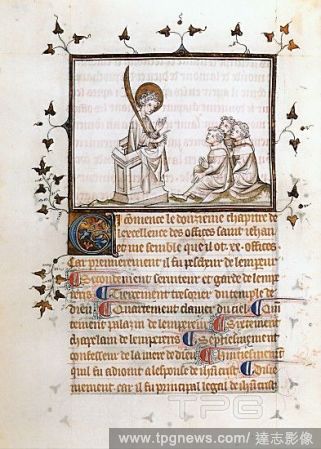 Ci cōmence le douzeme chapitre de
lexcellence des offices saint iehan
et me semble que il ot .xv. offices
Car premierement il fu
Secondement serviteur et garde de lempe
reris Tiercement tresorier du temple de
dieu Quartement clavier du ciel Quin
tement palazin de lempereris Sixtement
chapelain de lempereris Septiesmement
confesseur de la mere de dieu Huitiesmement
qui fu adiome a lespouse de ihūcrist
mement car il fu principal legal de ihūcrist
TPG
www.tpgnews.com/達志影像